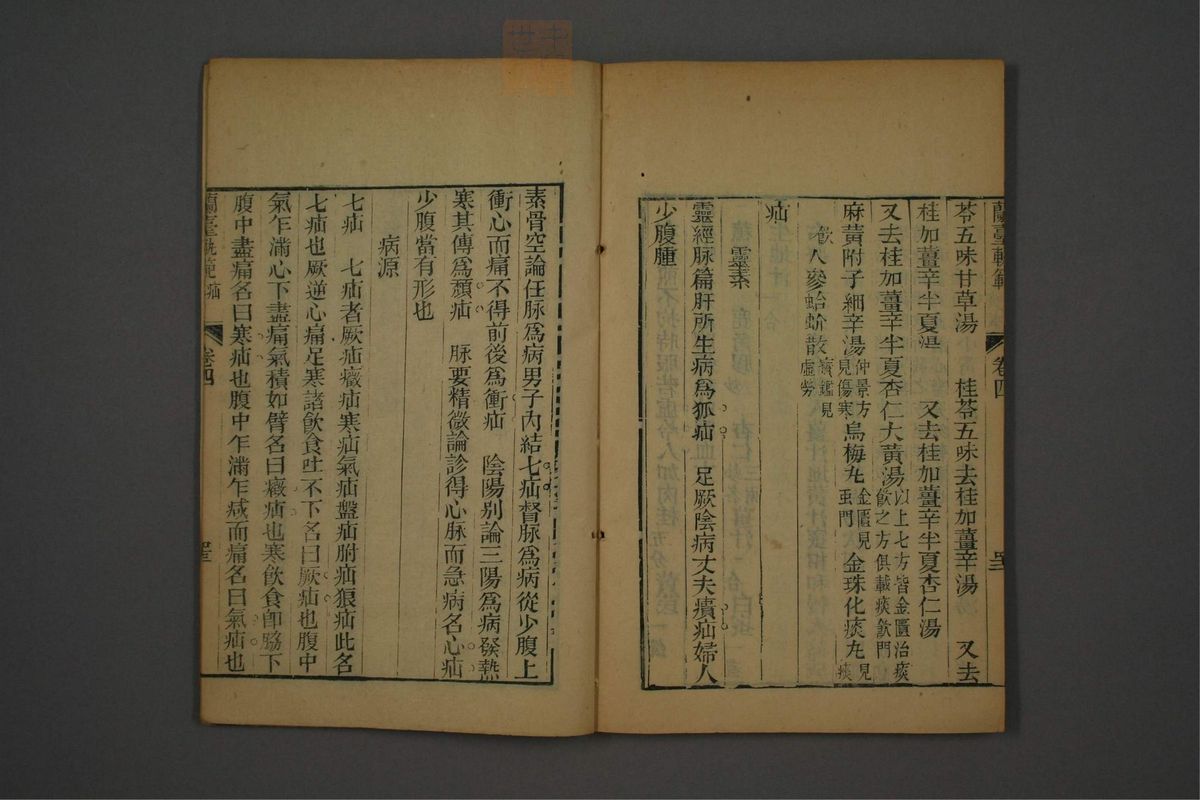 蘭臺軌範 卷四
苓五味甘草湯 桂苓五味去桂加薑辛湯 又去
桂加薑辛半夏湯 又去桂加薑辛半夏杏仁湯
又去桂加薑辛半夏杏仁大黃湯 以上七方皆金匱治痰飲之方俱載痰飲門
麻黃附子細辛湯 仲景方見傷寒 烏梅丸 金匱見虫門 金珠化痰丸 見痰
飲 人參蛤蚧散 寳鑑見虛勞
疝
靈素
靈經脉篇肝所生病爲狐疝 足厥陰病丈夫㿉疝婦人
少腹腫
素骨空論任脉爲病男子內結七疝督脉爲病從少腹上
衝心而痛不得前後爲衝疝 陰陽别論三陽爲病發熱
寒其傳爲㿉疝 脉要精微論診得心脉而急病名心疝
少腹當有形也
病源
七疝 七疝者厥疝癥疝寒疝氣疝盤疝胕疝狼疝此名
七疝也厥逆心痛足寒諸飮食吐不下名曰厥疝也腹中
氣乍滿心下盡痛氣積如臂名曰癥疝也寒飮食卽脇下
腹中盡痛名曰寒疝也腹中乍滿乍减而痛名曰氣疝也
蘭臺軌範 疝 卷四